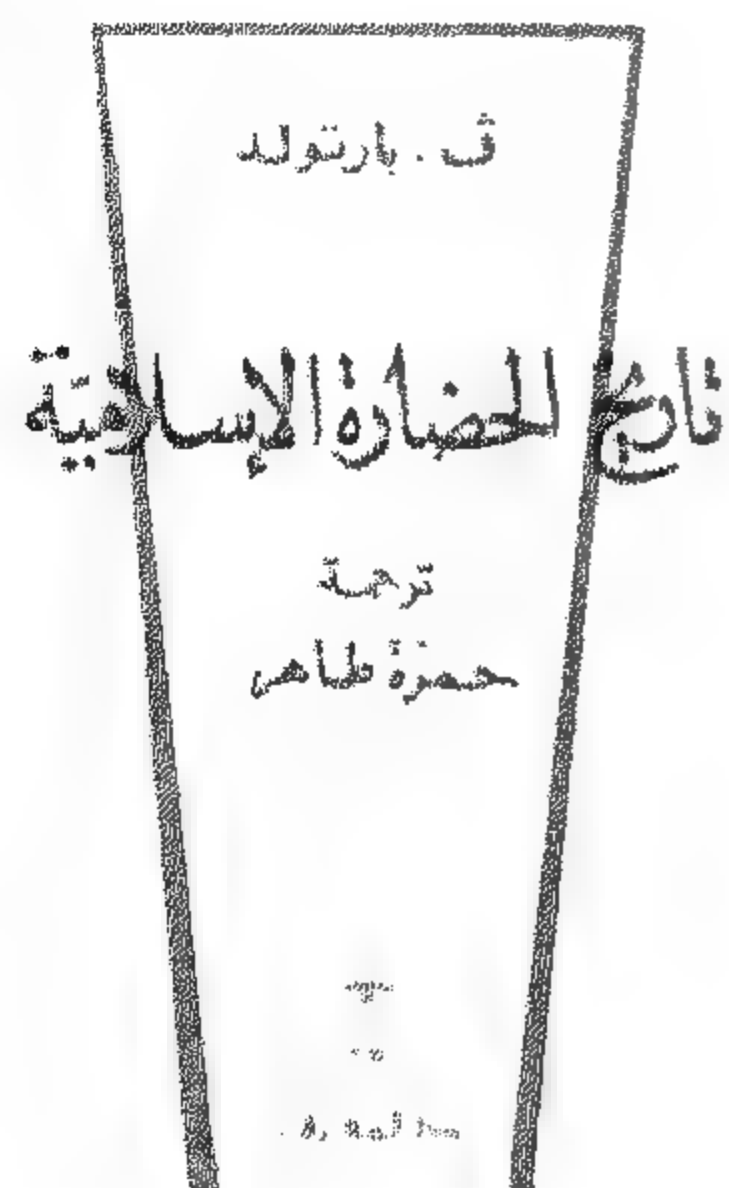 ڤ . بارتولد
تاريخ الحضارة الإسلاميّة
ترجمة
حمزة طاهر